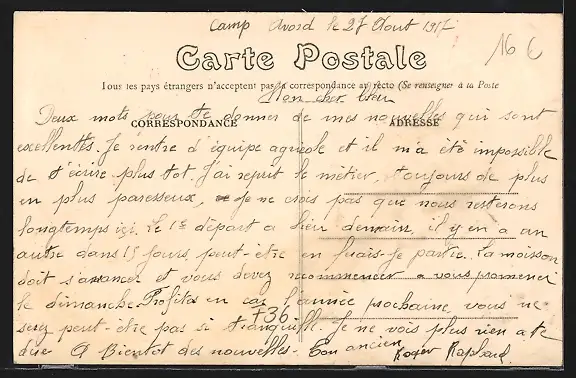 Camp Avord le 27 Aout 1917
16 €
Carte Postale
Tous les pays étrangers n'acceptent pas la correspondance au recto (Se renseigner à la Poste
Mon cher
CORRESPONDANCE
ADRESSE
Deux mots pour te donner de mes nouvelles qui sont
excellentes. Je rentre d'équipe agricole et il m'a été impossible
de t'écrire plus tot. J'ai repris le métier, toujours de plus
en plus paresseux, je ne crois pas que nous resterons
longtemps ici. Le 1er départ a lieu demain, il y en a un
autre dans 15 jours, peut-être en fuais-je partie. La moisson
doit s'avancer et vous devez recommencer a vous promener
le dimanche. Profites en car l'année prochaine vous ne
+36
serez peut-être pas si tranquille. Je ne vois plus rien a te
dire A Bientot des nouvelles. Ton ancien
Roger Raphael